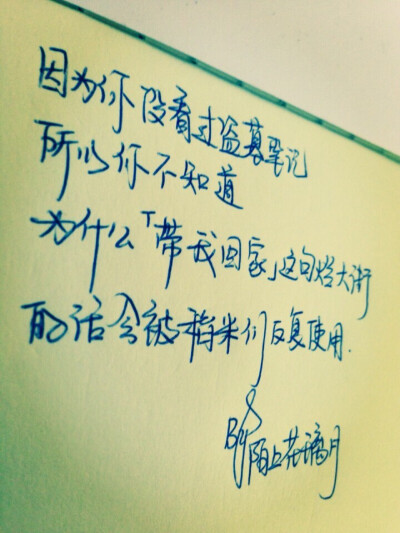 因为你没看过盗墓笔记
所以你不知道
为什么「带我回家」这句烂大街
的话会被稻米们反复使用.
By 陌上花璃月